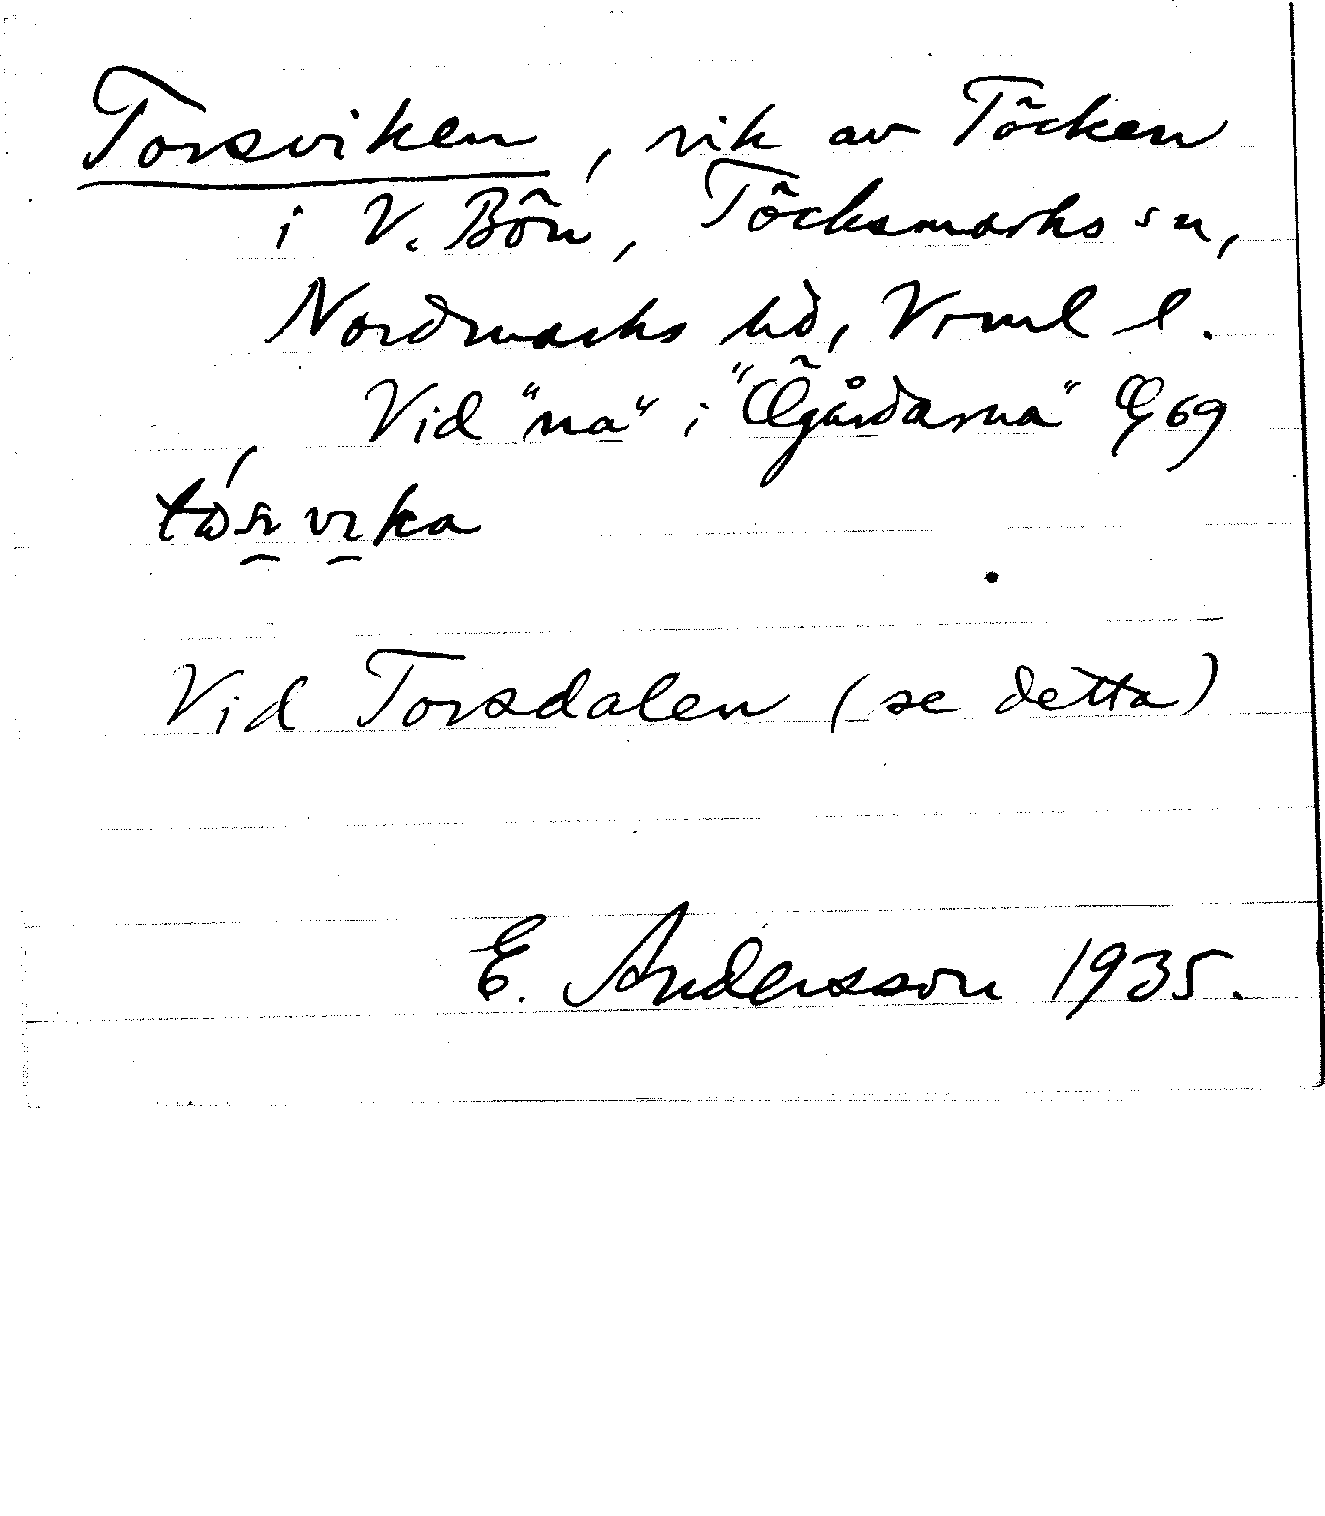 Torsviken, vik av Töcken
i V. Bön, Töcksmarks sn,
Nordmarks hd, Vrml l.
Vid "na" i "Ögårdarna" Œ 69
vika
Vid Torsdalen (se detta)
E. Andersson 1935.